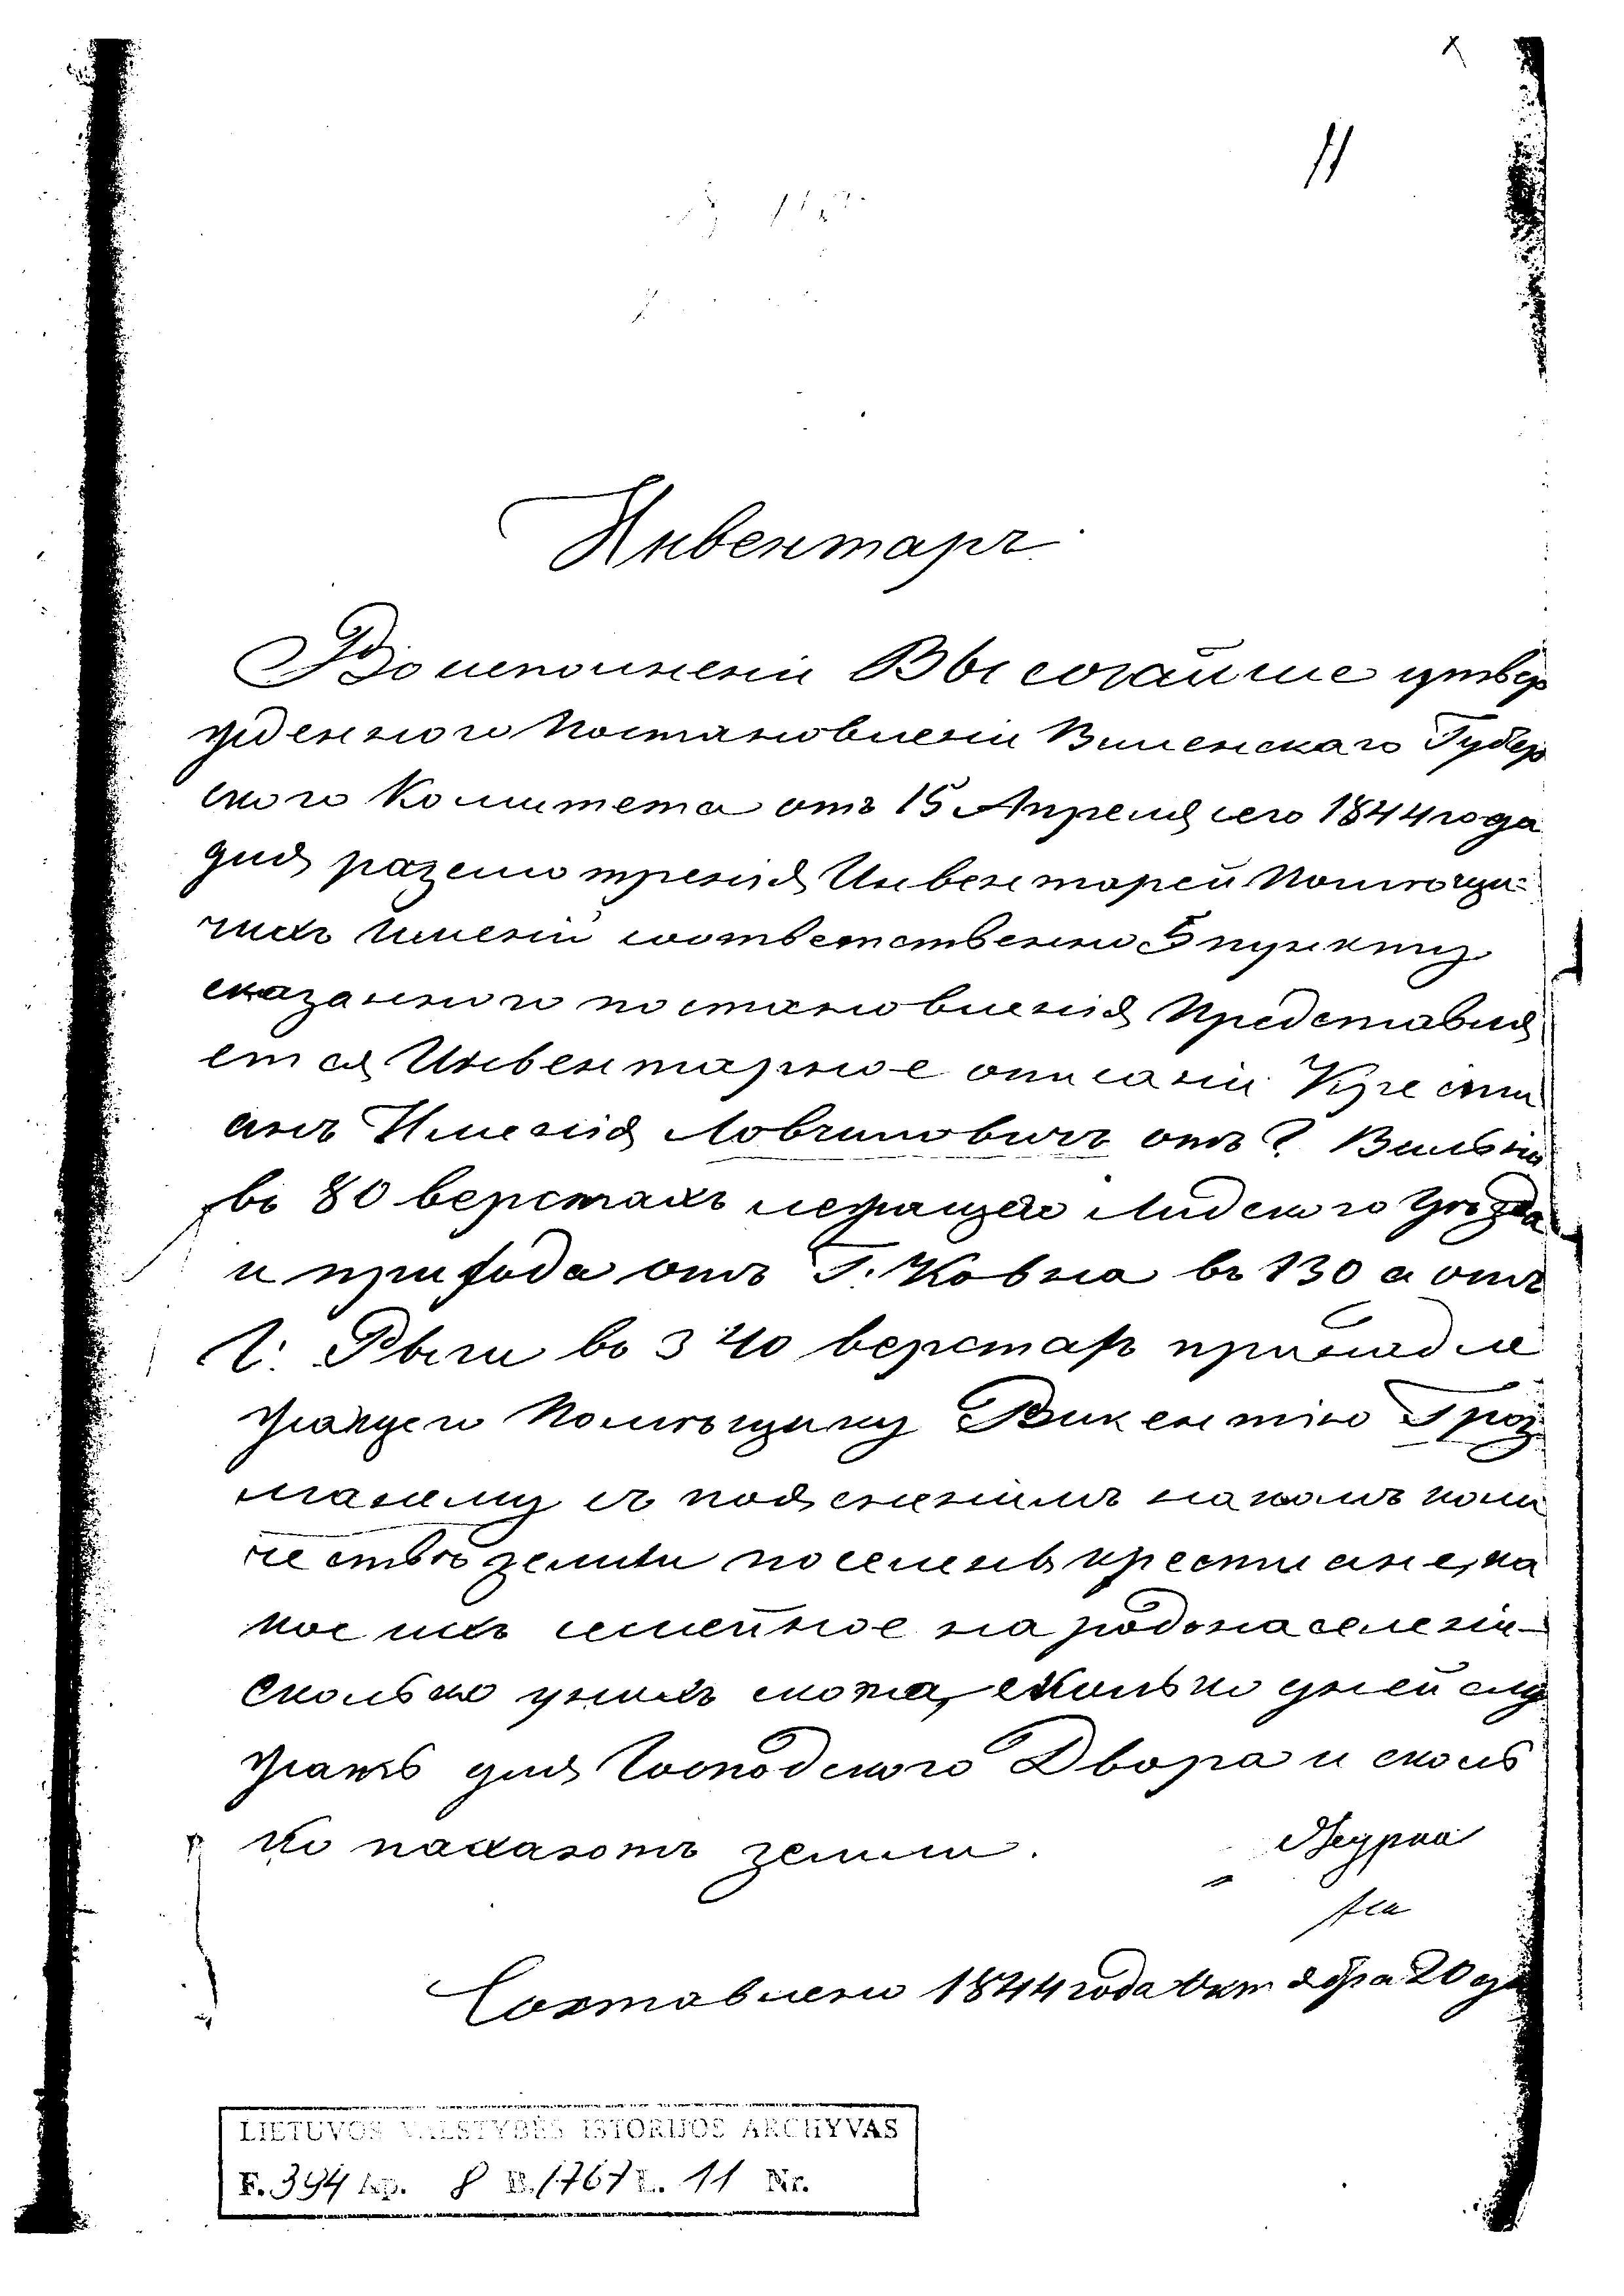 11
Инвентарь
Во исполнении Высочайше утвер
жденного Постановлении Виленскаго Губер
ского Комитета отъ 15 Апреля сего 1844 года
для разсмотрения Инвентарей Помѣщи=
чихъ Имений соответственно 5 пункту
сказанного постановления Представля
ется Инвентарное описании Крести
анъ Имения Ловчиловичъ отъ Г. Вильни
въ 80 верстахъ лежащего Лидского Уѣзда
и прихода отъ Г. Ковна въ 130 а отъ
Г. Рыги въ 340 верстахъ принадле
жащего Помѣщику Викентию Гроз
малему съ пояснениемъ на какомъ коли
чествѣ земли поселены крестиане, ка
кое ихъ семейное народонаселении
сколько унихъ скота, сколько дней слу
жатъ для Господского Двора и сколь
ко пахаютъ земли.
Составлено 1844 года Октября 20 дн
LIETUVOS VALSTYBĖS ISTORIJOS ARCHYVAS
F. 394 Ap. 8 B. 1767 L. 11 Nr.